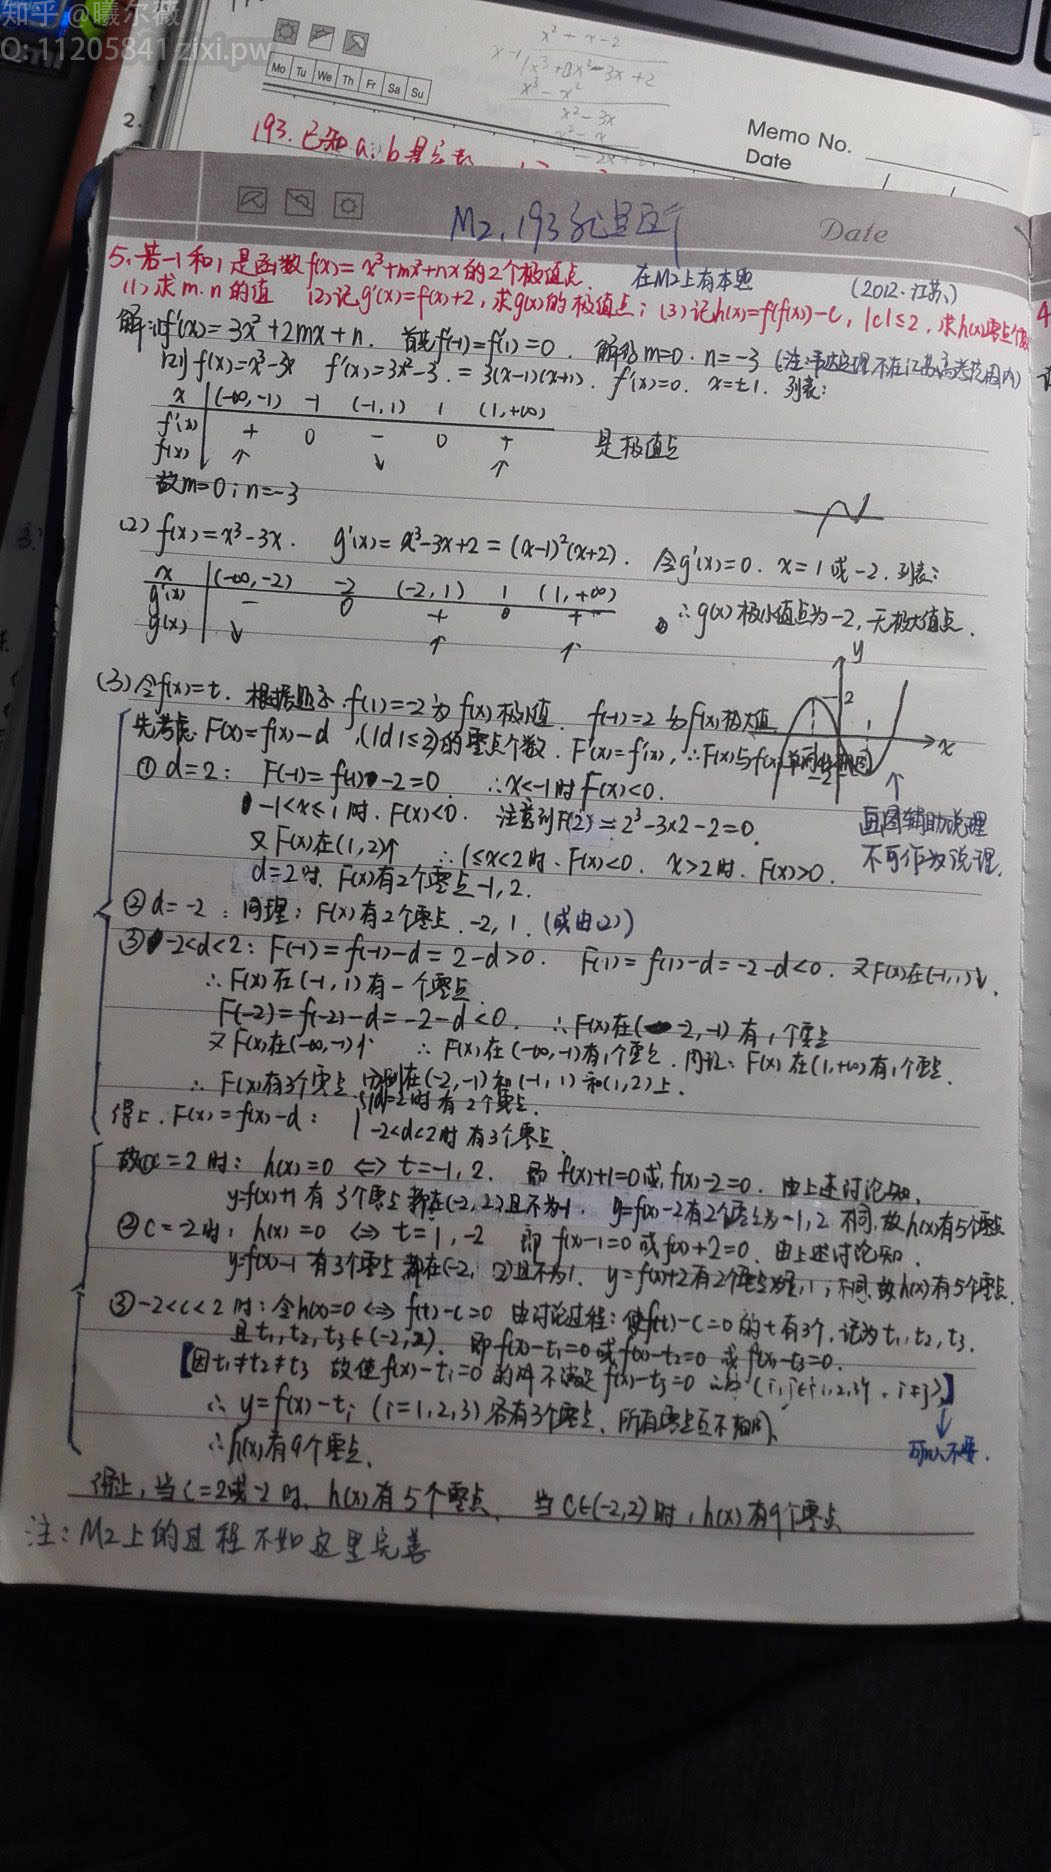 知乎 @曦尔薇
Q: 11205841 zixi.pw
x² + x - 2
x³ - x²
x² - 3x
Mo Tu We Th Fr Sa Su
Memo No.
Date
2.
193. 已知a, b是
M2, 193
Date
5. 若-1和1是函数f(x)=x³+mx²+nx的2个极值点. 在M2上有本题 (2012·江苏)
(1)求m.n的值 (2)记g'(x)=f(x)+2, 求g(x)的极值点; (3)记h(x)=f(f(x))-c, |c|≤2, 求h(x)零点个数
解:(1)f'(x)=3x²+2mx+n. 首先f'(-1)=f'(1)=0. 解得m=0. n=-3 (注:韦达定理不在江苏高考范围内)
则f(x)=x³-3x f'(x)=3x²-3.=3(x-1)(x+1). f'(x)=0. x=±1. 列表:
x (-∞,-1) -1 (-1,1) 1 (1,+∞)
f'(x) + 0 - 0 +
f(x) ↑ ↓ ↑ 是极值点
故m=0; n=-3
(2) f(x)=x³-3x. g'(x)=x³-3x+2=(x-1)²(x+2). 令g'(x)=0. x=1或-2. 列表:
x (-∞,-2) -2 (-2,1) 1 (1,+∞)
g'(x) - 0 + 0 +
g(x) ↓ ↑ ↑ ∴g(x)极小值点为-2, 无极大值点.
y
2
x
(3)令f(x)=t. f(1)=-2为f(x)极小值 f(-1)=2为f(x)极大值
先考虑F(x)=f(x)-d (|d|≤2)的零点个数. F'(x)=f'(x), ∴F(x)与f(x)单调性相同
① d=2: F(-1)=f(-1)-2=0 ∴x<-1时F(x)<0.
-1<x≤1时. F(x)<0. 注意到F(2)=2³-3×2-2=0.
画图辅助说理
又F(x)在(1,2)↑ ∴1≤x<2时. F(x)<0. x>2时. F(x)>0.
不可作为说理.
d=2时. F(x)有2个零点-1,2.
② d=-2: 同理: F(x)有2个零点. -2, 1. (或由(2))
③ -2<d<2: F(-1)=f(-1)-d=2-d>0. F(1)=f(1)-d=-2-d<0. 又F(x)在(-1,1)↓.
∴F(x)在(-1,1)有一个零点
F(-2)=f(-2)-d=-2-d<0. ∴F(x)在(-2,-1)有1个零点
又F(x)在(-∞,-1)↑ ∴F(x)在(-∞,-1)有1个零点. 同理: F(x)在(1,+∞)有1个零点.
∴F(x)有3个零点. 分别在(-2,-1)和(-1,1)和(1,2)上.
综上. F(x)=f(x)-d: |d|=2时有2个零点.
-2<d<2时有3个零点.
故①c=2时: h(x)=0 ⇔ t=-1, 2. 即f(x)+1=0或f(x)-2=0. 由上述讨论知.
y=f(x)+1有3个零点都在(-2,2)且不为-1. y=f(x)-2有2个零点为-1,2. 不同, 故h(x)有5个零点
②c=-2时: h(x)=0 ⇔ t=1, -2 即f(x)-1=0或f(x)+2=0. 由上述讨论知.
y=f(x)-1有3个零点都在(-2, 2)且不为1. y=f(x)+2有2个零点为-2,1; 不同. 故h(x)有5个零点.
③-2<c<2时: 令h(x)=0 ⇔ f(t)-c=0 由讨论过程: 使f(t)-c=0的t有3个, 记为t₁, t₂, t₃.
且t₁,t₂,t₃∈(-2,2). 即f(x)-t₁=0或f(x)-t₂=0或f(x)-t₃=0.
【因t₁≠t₂≠t₃ 故使f(x)-tᵢ=0的x不满足f(x)-tⱼ=0 (i,j∈{1,2,3}, i≠j)】
∴ y=f(x)-tᵢ (i=1,2,3)各有3个零点、所有零点互不相同.
∴h(x)有9个零点.
可加入不要.
综上, 当c=2或-2时, h(x)有5个零点, 当c∈(-2,2)时, h(x)有9个零点
注: M2上的过程不如这里完善